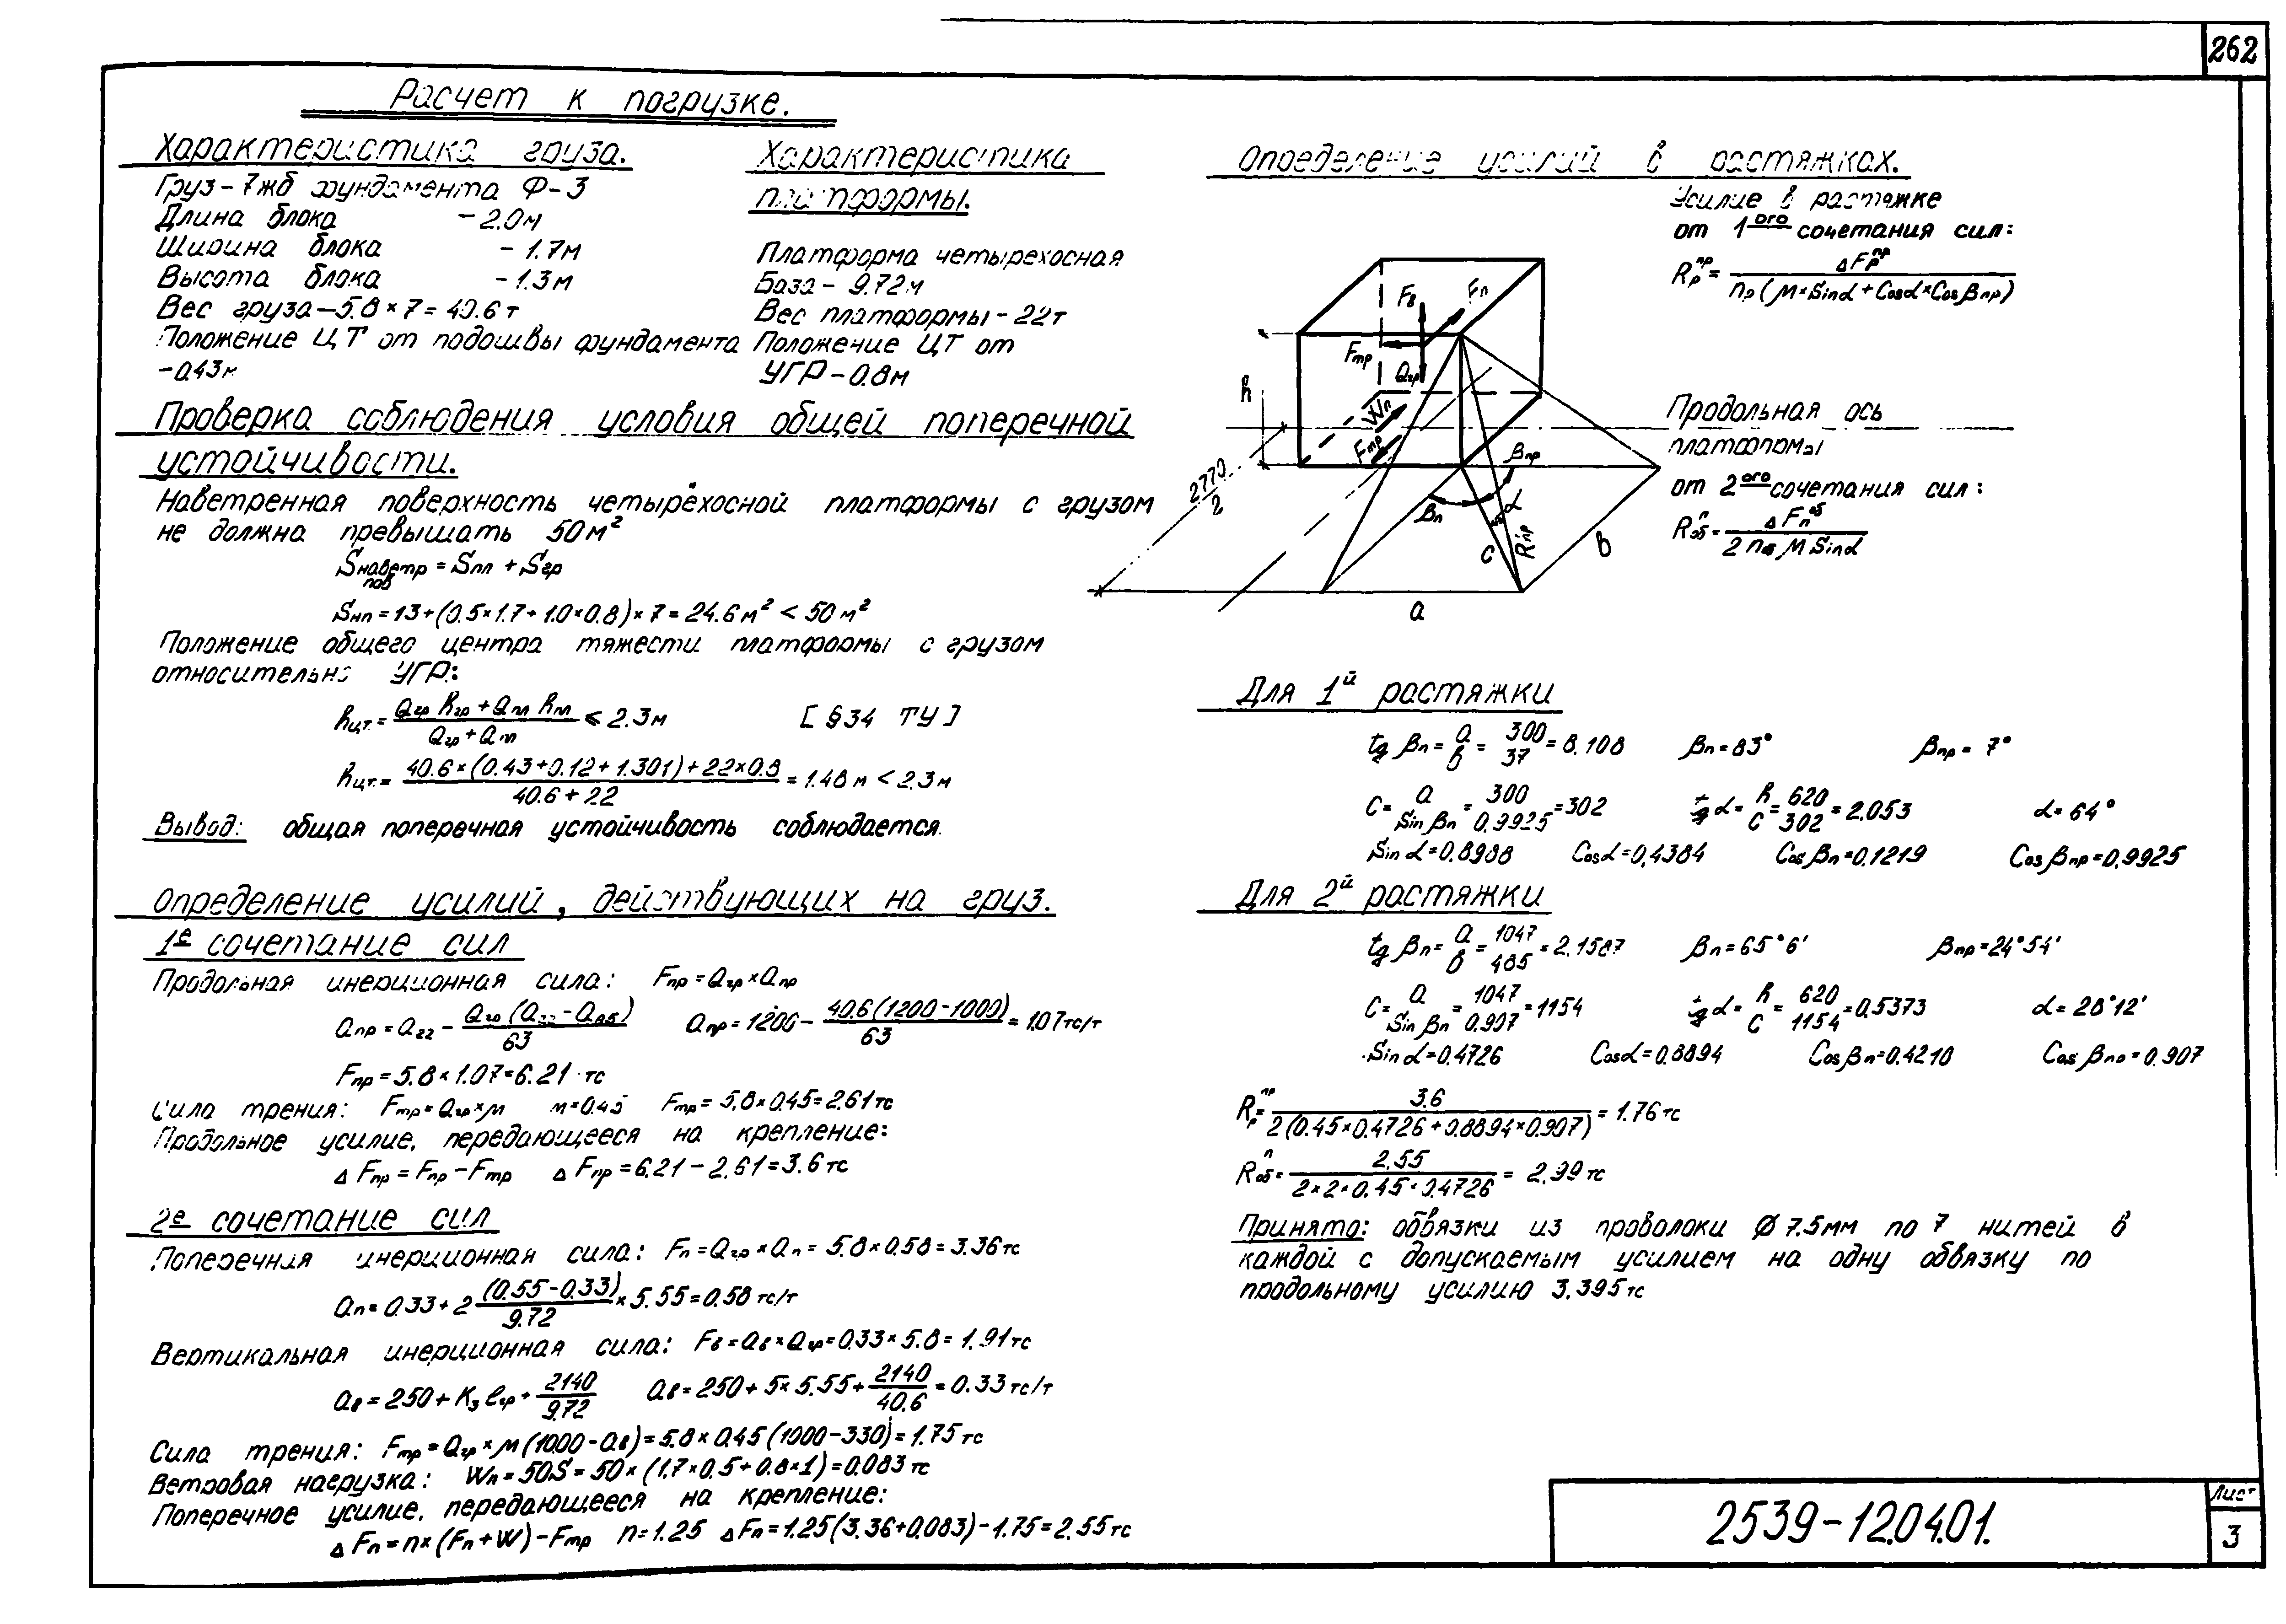 262
Расчет к погрузке.
Характеристика груза.
Груз - 7 жб фундамента Ф-3
Длина блока - 2.0м
Ширина блока - 1.7м
Высота блока - 1.3м
Вес груза - 5.8×7 = 40.6 т
Положение ЦТ от подошвы фундамента
- 0.43м
Характеристика
платформы.
Платформа четырехосная
База - 9.72м
Вес платформы - 22т
Положение ЦТ от
УГР - 0.8м
Проверка соблюдения условия общей поперечной
устойчивости.
Наветренная поверхность четырёхосной платформы с грузом
не должна превышать 50м²
Sнаветр пов = Sпл + Sгр
Sнп = 13+(0.5×1.7+1.0×0.8)×7 = 24.6м² < 50м²
Положение общего центра тяжести платформы с грузом
относительно УГР:
hцт. = (Qгр hгр + Qпл hпл) / (Qгр + Qпл) ≤ 2.3м [§34 ТУ]
hцт. = (40.6×(0.43+0.12+1.301)+22×0.8) / (40.6+22) = 1.48м < 2.3м
Вывод: общая поперечная устойчивость соблюдается.
Определение усилий, действующих на груз.
1е сочетание сил
Продольная инерционная сила: Fпр = Qгр × Qпр
Qпр = Q22 - Qгр (Q22 - Q85) / 63 Qпр = 1200 - 40.6(1200-1000) / 63 = 1.07тс/т
Fпр = 5.8×1.07 = 6.21 тс
Сила трения: Fтр = Qгр×м м=0.45 Fтр = 5.8×0.45 = 2.61тс
Продольное усилие, передающееся на крепление:
Δ Fпр = Fпр - Fтр Δ Fпр = 6.21 - 2.61 = 3.6тс
2е сочетание сил
Поперечная инерционная сила: Fп = Qгр × Qп = 5.8×0.58 = 3.36тс
Qп = 0.33+2 (0.55-0.33) / 9.72 × 5.55 = 0.58тс/т
Вертикальная инерционная сила: Fв = Qв×Qгр = 0.33×5.8 = 1.91тс
Qв = 250 + Kз lгр + 2140 / 9.72 Qв = 250+5×5.55+ 2140 / 40.6 = 0.33тс/т
Сила трения: Fтр = Qгр × м (1000-Qв) = 5.8×0.45(1000-330) = 1.75тс
Ветровая нагрузка: Wп = 50S = 50×(1.7×0.5+0.8×1) = 0.083тс
Поперечное усилие, передающееся на крепление:
Δ Fп = n×(Fп+W)-Fтр n=1.25 ΔFп = 1.25(3.36+0.083)-1.75 = 2.55тс
Определение усилий в растяжках.
Усилие в растяжке
от 1ого сочетания сил:
Rр пр = ΔFр пр / nр (м×Sinα + Cosα×Cosβпр)
Fв
Fп
Fтр
Qгр
h
Wп
Fтр
Продольная ось
платформы
βпр
2770/2
βп
α
c
Rпр
в
a
от 2ого сочетания сил:
Rоб п = ΔFп об / 2 nоб м Sinα
Для 1й растяжки
tg βп = a/в = 300/37 = 8.108 βп = 83° βпр = 7°
C = a / Sin βп = 300 / 0.9925 = 302 tg α = h/c = 620/302 = 2.053 α = 64°
Sin α = 0.8988 Cosα = 0,4384 Cos βп = 0.1219 Cos βпр = 0.9925
Для 2й растяжки
tg βп = a/в = 1047/485 = 2.1587 βп = 65°6' βпр = 24°54'
C = a / Sin βп = 1047 / 0.907 = 1154 tg α = h/c = 620/1154 = 0.5373 α = 28°12'
Sin α = 0.4726 Cosα = 0.8894 Cos βп = 0.4210 Cos βпр = 0.907
Rр пр = 3.6 / 2(0.45×0.4726+0.8894×0.907) = 1.76тс
Rоб п = 2.55 / 2×2×0.45×0.4726 = 2.99тс
Принято: обвязки из проволоки Ø 7.5мм по 7 нитей в
каждой с допускаемым усилием на одну обвязку по
продольному усилию 3.395тс
2539-12.04.01.
Лист
3